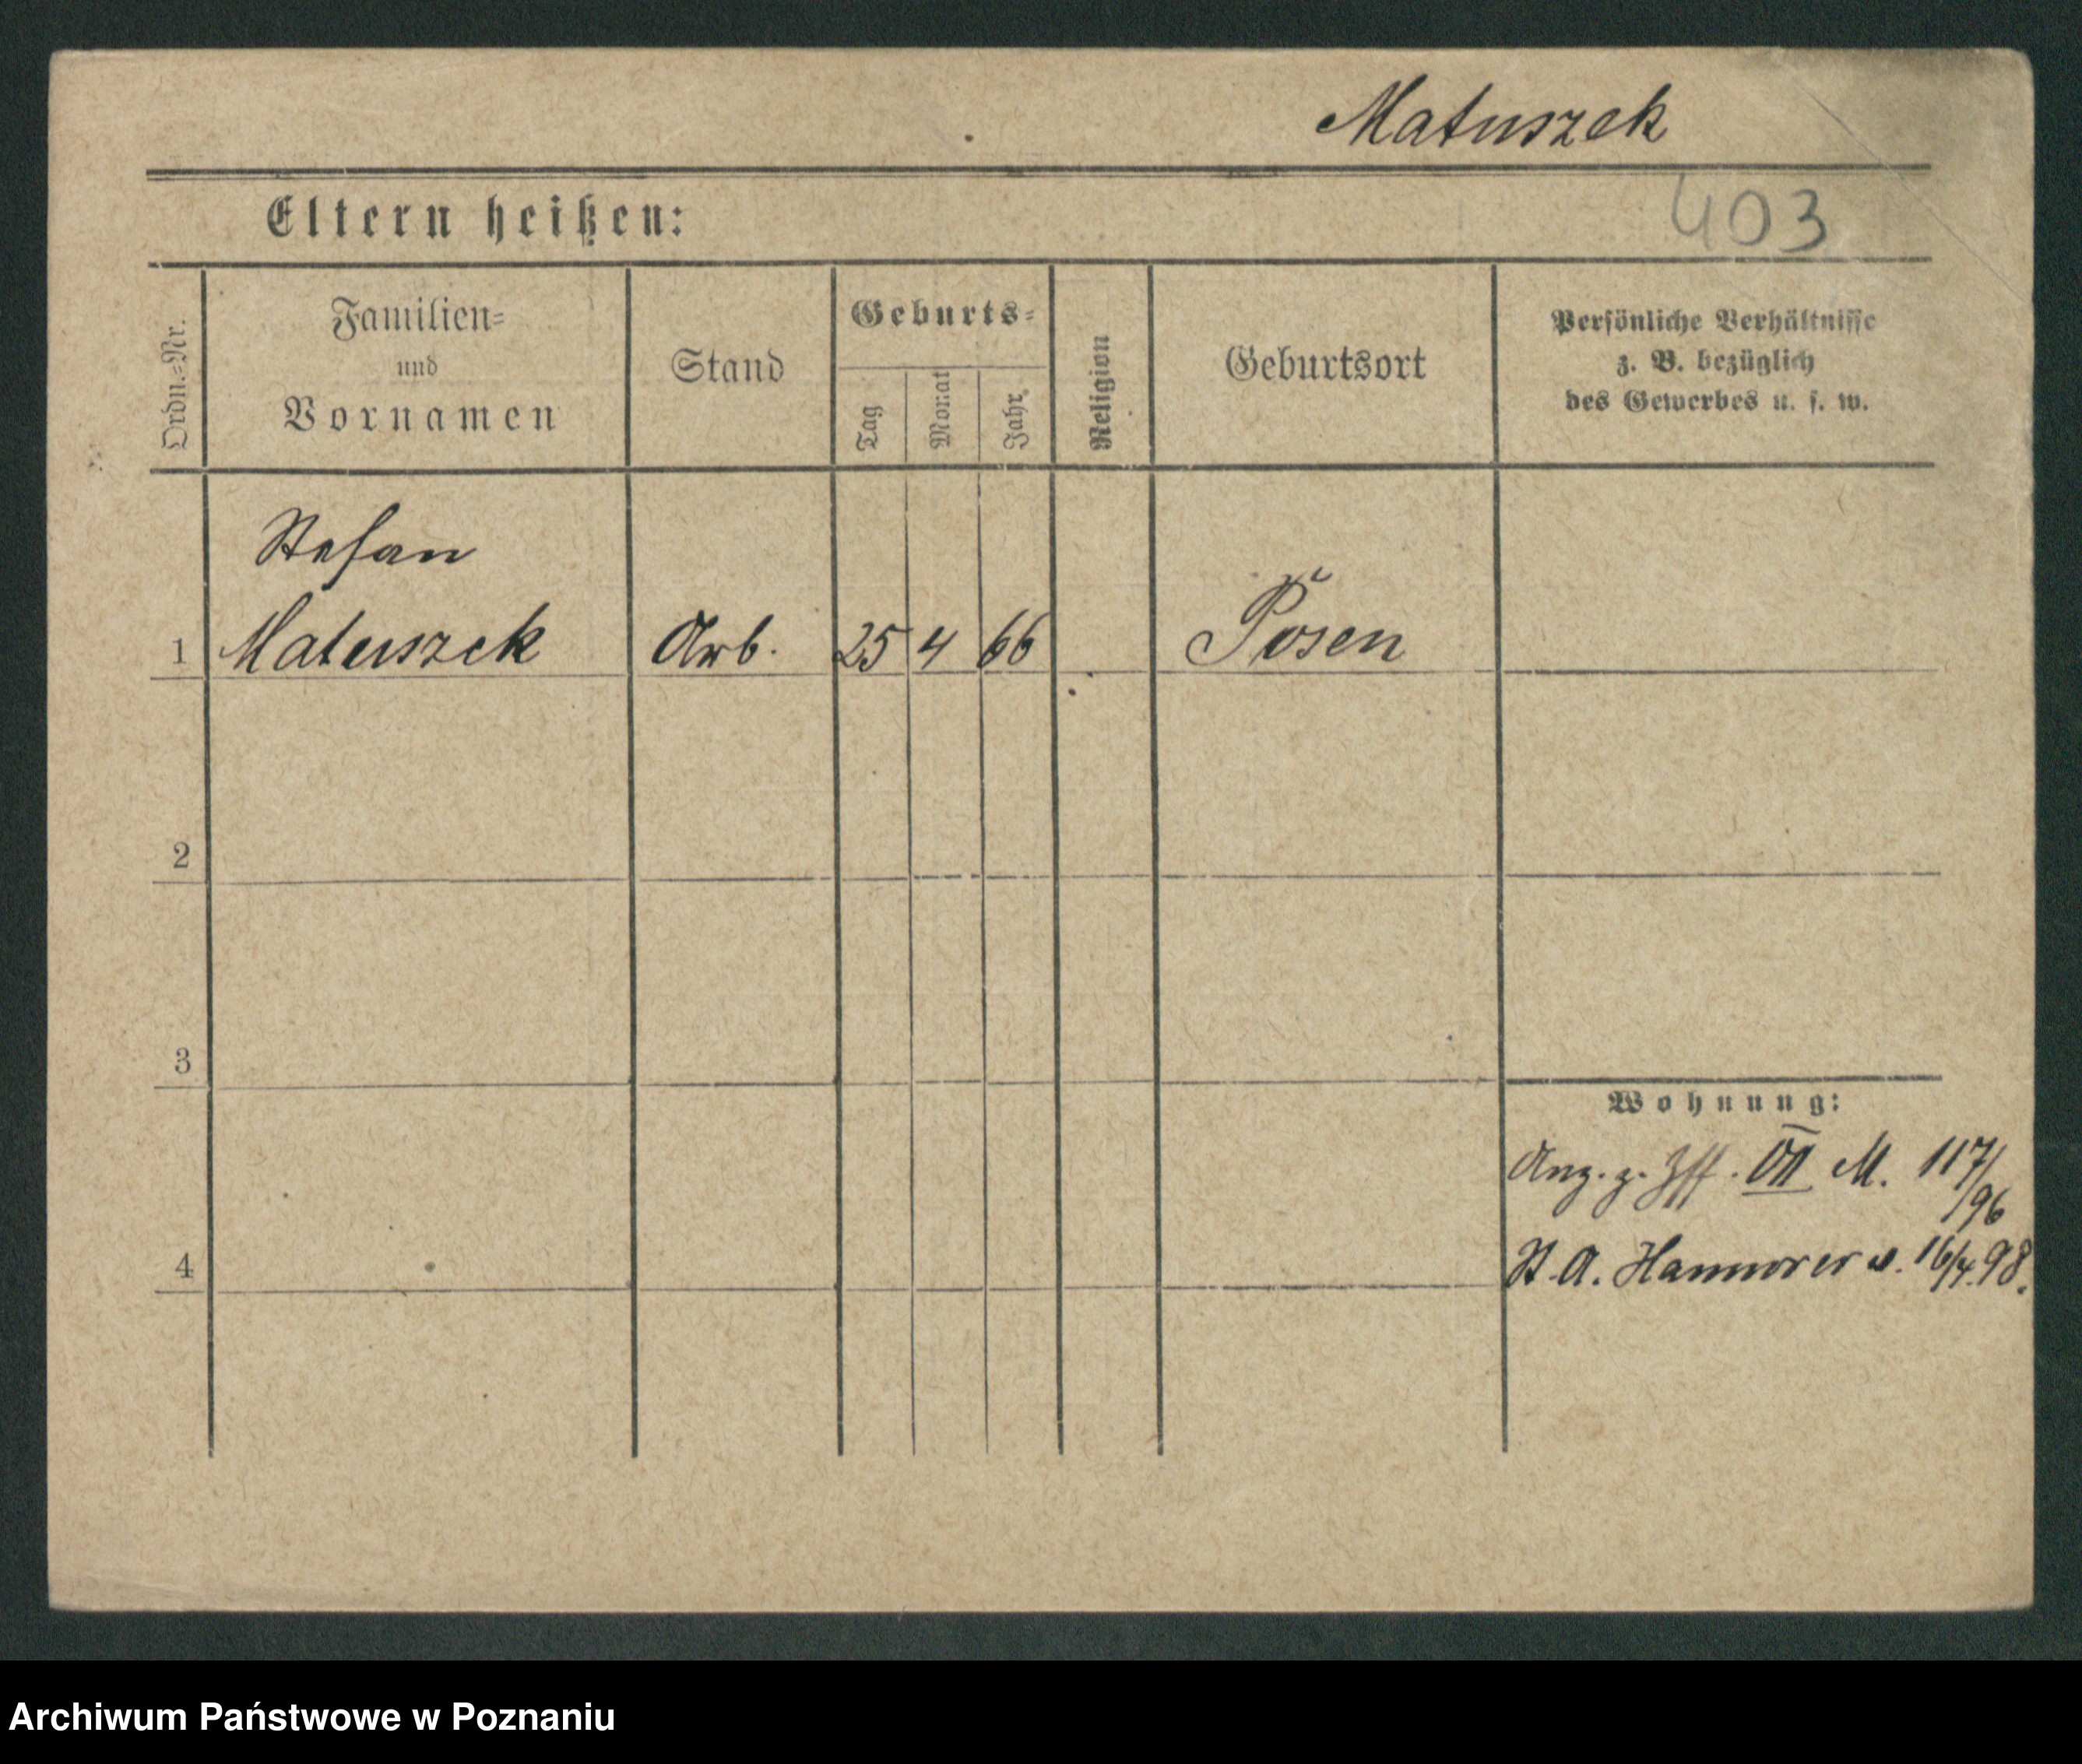 Matuszek
Eltern heißen:
403
Ordn.-Nr.
Familien-
und
Vornamen
Stand
Geburts-
Tag
Monat
Jahr
Religion
Geburtsort
Persönliche Verhältnisse
z. B. bezüglich
des Gewerbes u. s. w.
Stefan
1 Matuszek Arb. 25 4 66 Posen
2
3
Wohnung:
Anz. z. M. 117/96
4
St. A. Hannover v. 16/4.98.
Archiwum Państwowe w Poznaniu